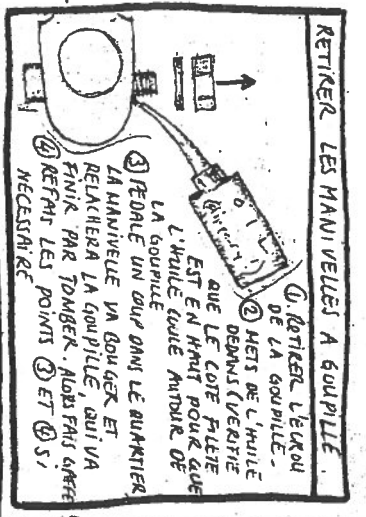 RETIRER LES MANIVELLES A GOUPILLE.
① RETIRER L'ECROU
DE LA GOUPILLE.
② METS DE L'HUILE
DEDANS (VERIFIE
QUE LE COTE FILETE
EST EN HAUT POUR QUE
L'HUILE COULE AUTOUR DE
LA GOUPILLE
③ PEDALE UN COUP DANS LE QUARTIER
LA MANIVELLE VA BOUGER ET
RELACHERA LA GOUPILLE, QUI VA
FINIR PAR TOMBER. ALORS FAIS GAFFE
④ REFAIS LES POINTS ③ ET ④ SI
NECESSAIRE